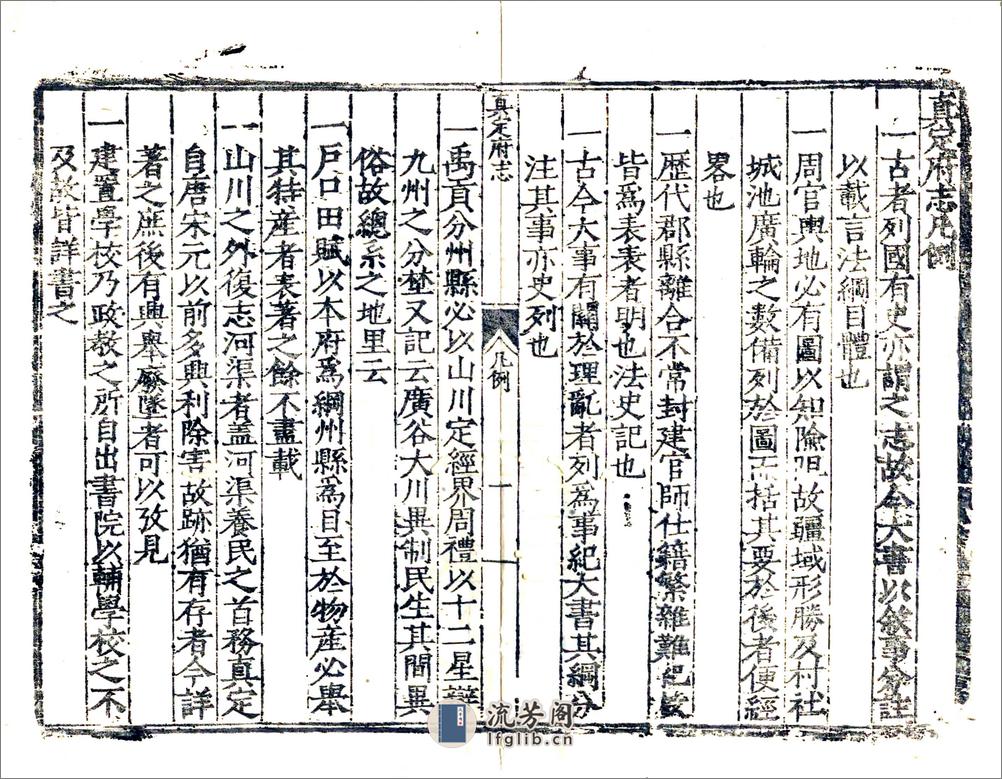 真定府志凡例
一古者列國有史亦謂之志故今大書以敘事分註
以載言法綱目體也
一周官輿地必有圖以知險阨故疆域形勝及村社
城池廣輪之數備列於圖而括其要於後者便經
畧也
一歷代郡縣離合不常封建官師仕籍繁雜難紀
皆爲表表者明也法史記也
一古今大事有關於理亂者列爲事紀大書其綱分
注其事亦史列也
真定府志
凡例
一
一禹貢分州縣必以山川定經界周禮以十二星辯
九州之分埜又記云廣谷大川異制民生其間異
俗故總系之地里云
一戶口田賦以本府爲綱州縣爲目至於物産必舉
其特産者表著之餘不盡載
一山川之外復志河渠者盖河渠養民之首務真定
自唐宋元以前多興利除害故跡猶有存者今詳
著之庶後有興舉廢墜者可以攷見
一建置學校乃政教之所自出書院以輔學校之不
及故皆詳書之
流芳阁
lfglib.cn